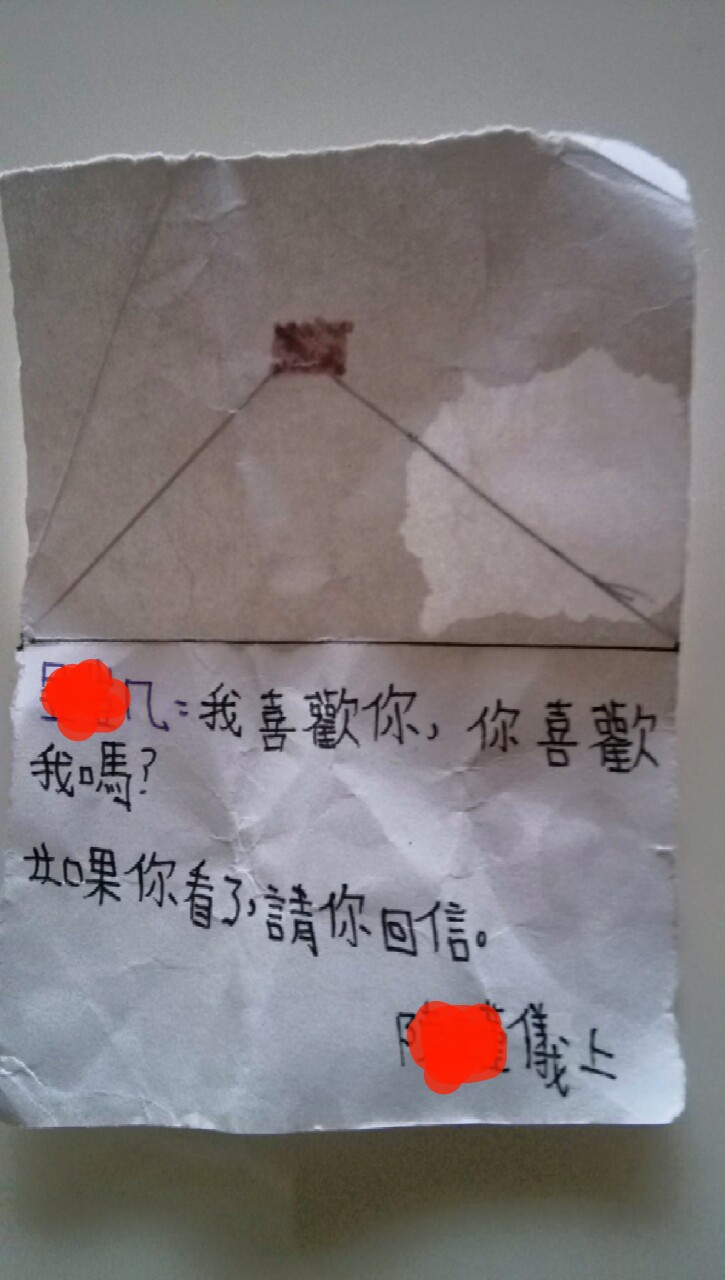 ：我喜歡你，你喜歡
我嗎？
如果你看了，請你回信。
儀上